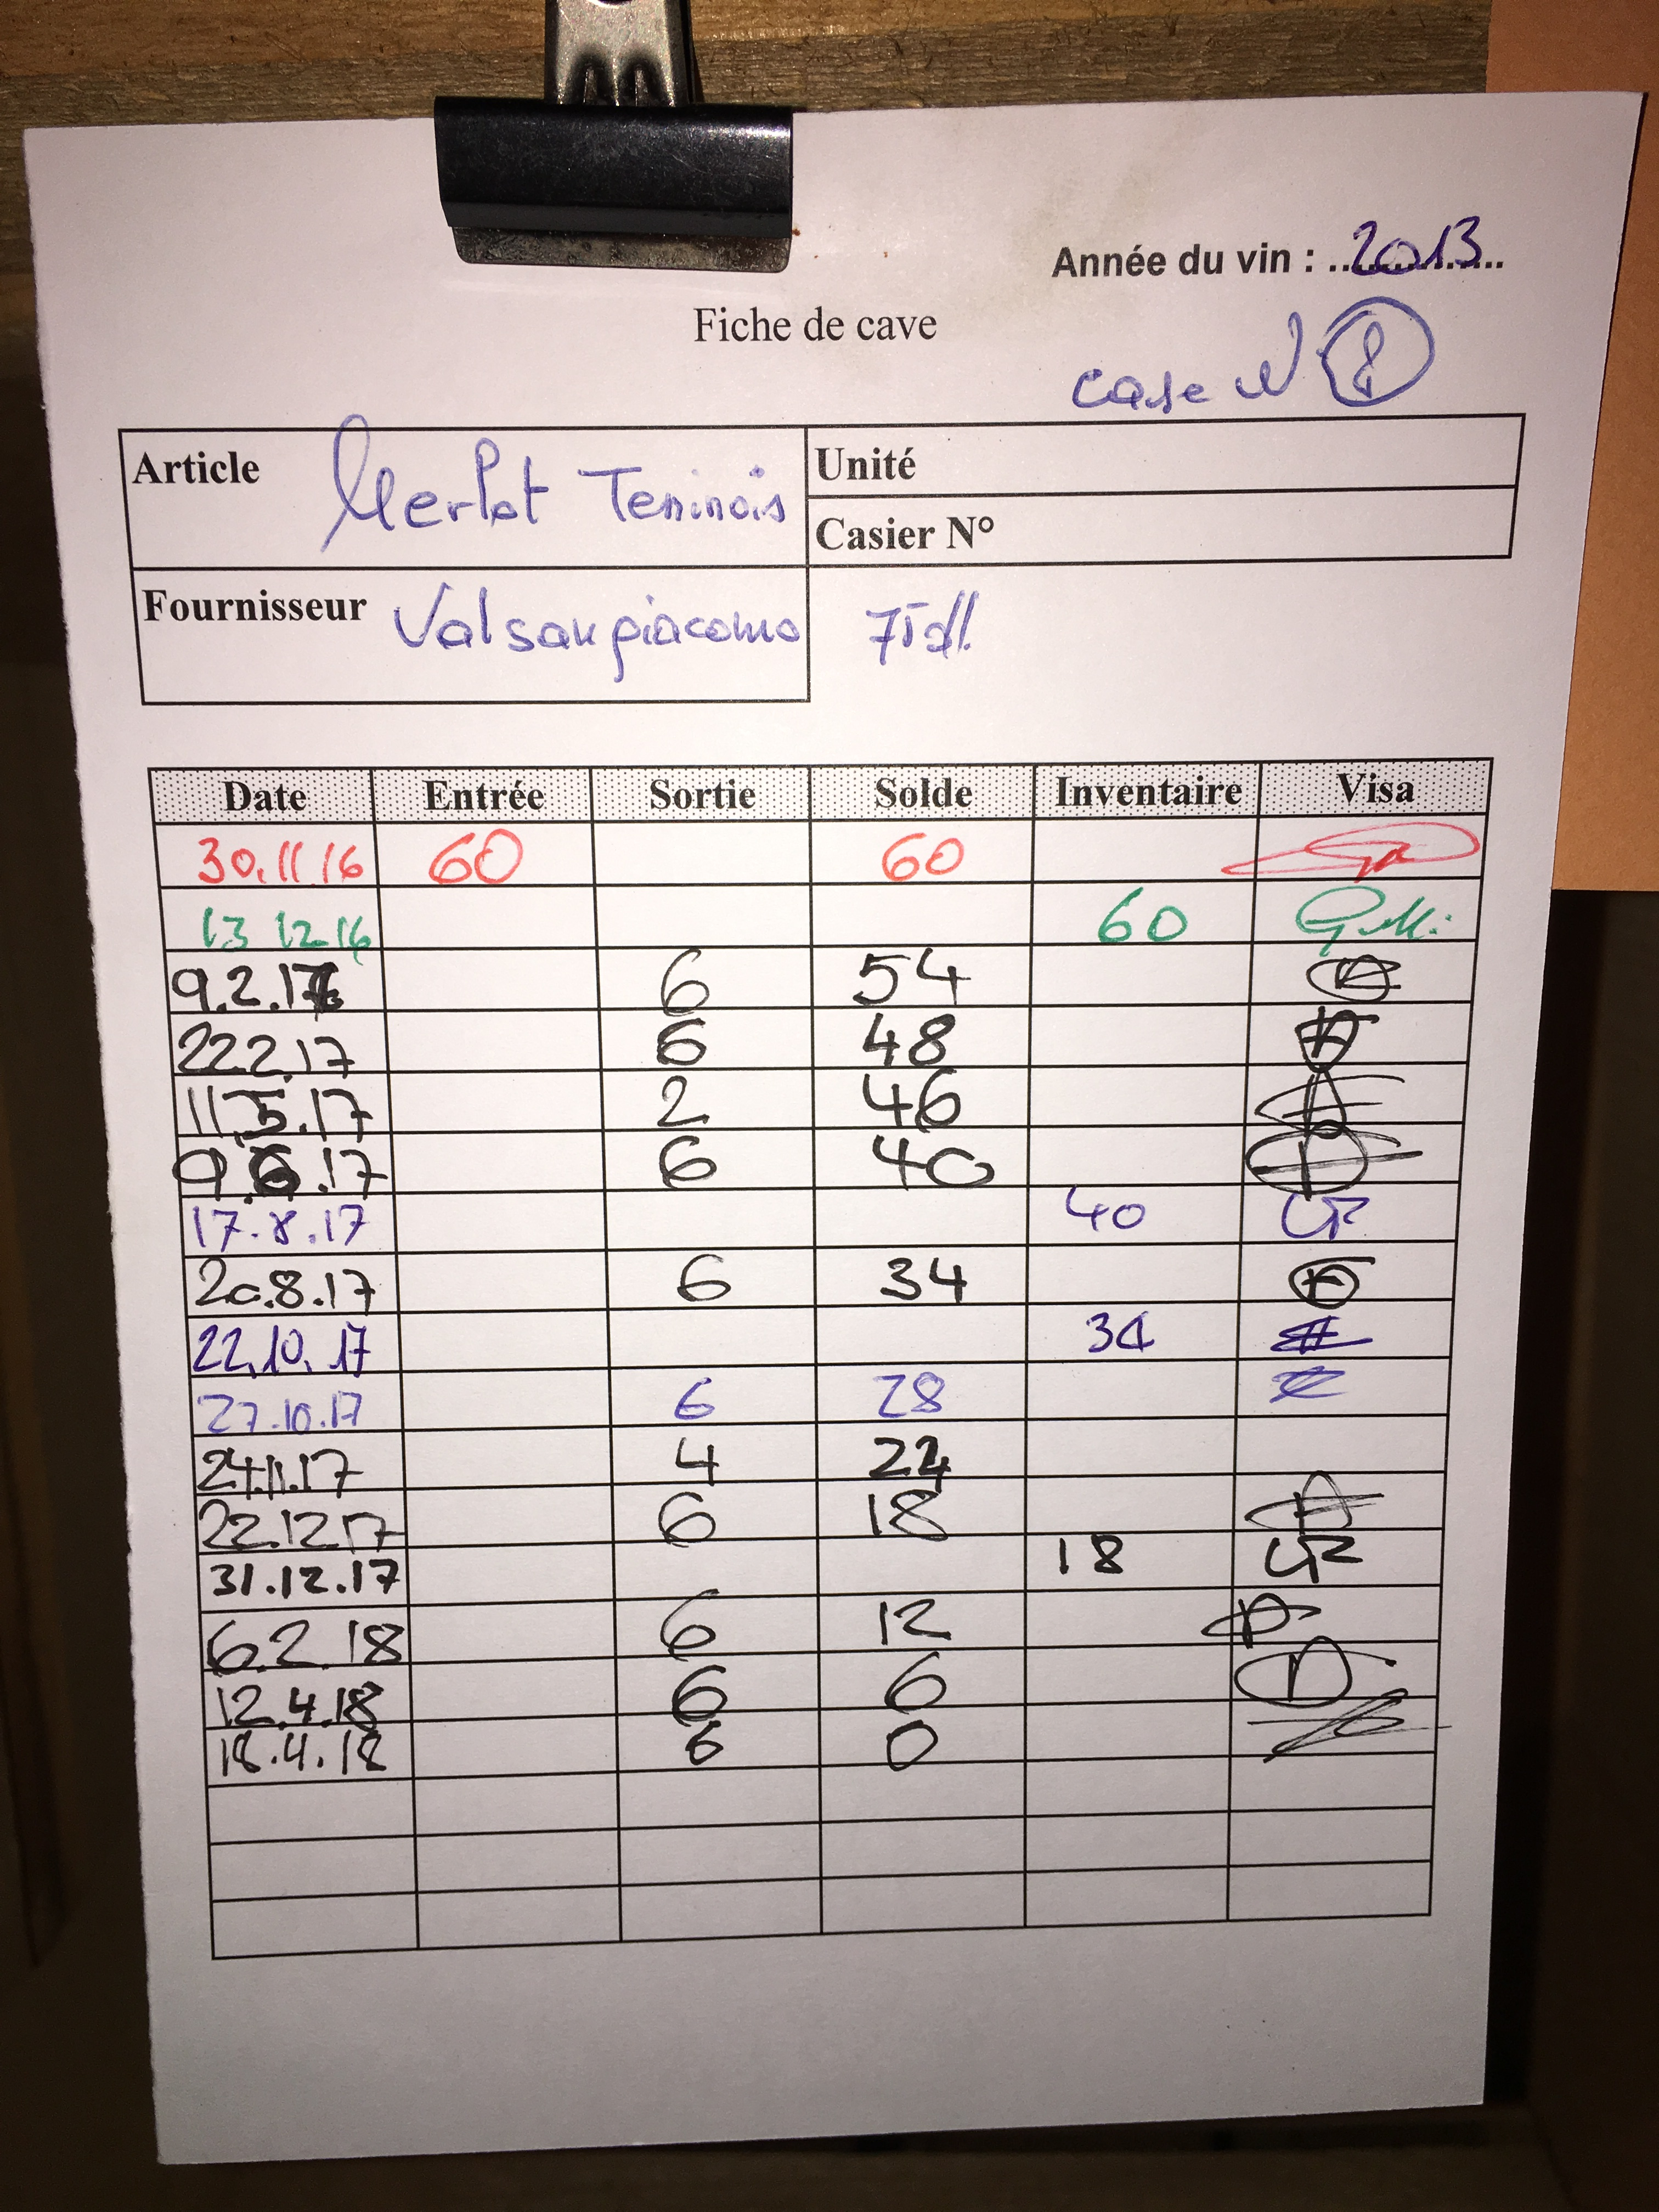 Année du vin : 2013
Fiche de cave
Case N 8
Article Merlot Tessinois Unité
Casier N°
Fournisseur Valsangiacomo 75 dl.
Date Entrée Sortie Solde Inventaire Visa
30.11.16 60 60
13 12.16 60
9.2.17 6 54
22.2.17 6 48
11.5.17 2 46
9.6.17 6 40
17.8.17 40
20.8.17 6 34
22.10.17 34
27.10.17 6 28
24.11.17 4 24
22.12.17 6 18
31.12.17 18
6.2.18 6 12
12.4.18 6 6
18.4.18 6 0